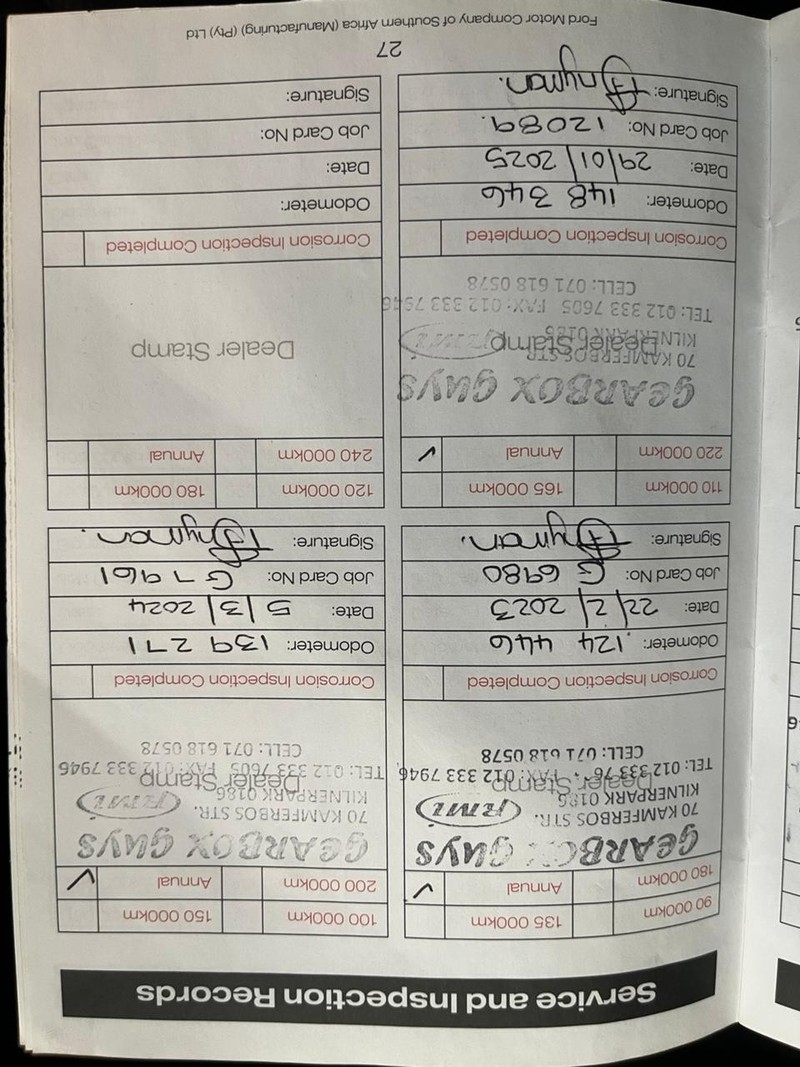 Service and Inspection Records
90 000km 135 000km
180 000km Annual ✓
GEARBOX GUYS
70 KAMFERBOS STR.
KILNERPARK 0186 RMI
Dealer Stamp
TEL: 012 333 76 FAX: 012 333 7946
CELL: 071 618 0578
Corrosion Inspection Completed
Odometer: 124 446
Date: 22/2/2023
Job Card No: G 6980
Signature: Snyman.
100 000km 150 000km
200 000km Annual ✓
GEARBOX GUYS
70 KAMFERBOS STR.
KILNERPARK 0186 RMI
Dealer Stamp
TEL: 012 333 7605 FAX: 012 333 7946
CELL: 071 618 0578
Corrosion Inspection Completed
Odometer: 139 271
Date: 5/3/2024
Job Card No: G7961
Signature: Snyman.
110 000km 165 000km
220 000km Annual ✓
GEARBOX GUYS
70 KAMFERBOS STR.
KILNERPARK 0186 RMI
Dealer Stamp
TEL: 012 333 7605 FAX: 012 333 7946
CELL: 071 618 0578
Corrosion Inspection Completed
Odometer: 148 346
Date: 29/01/2025
Job Card No: 12089.
Signature: Snyman.
120 000km 180 000km
240 000km Annual
Dealer Stamp
Corrosion Inspection Completed
Odometer:
Date:
Job Card No:
Signature:
27
Ford Motor Company of Southern Africa (Manufacturing) (Pty) Ltd